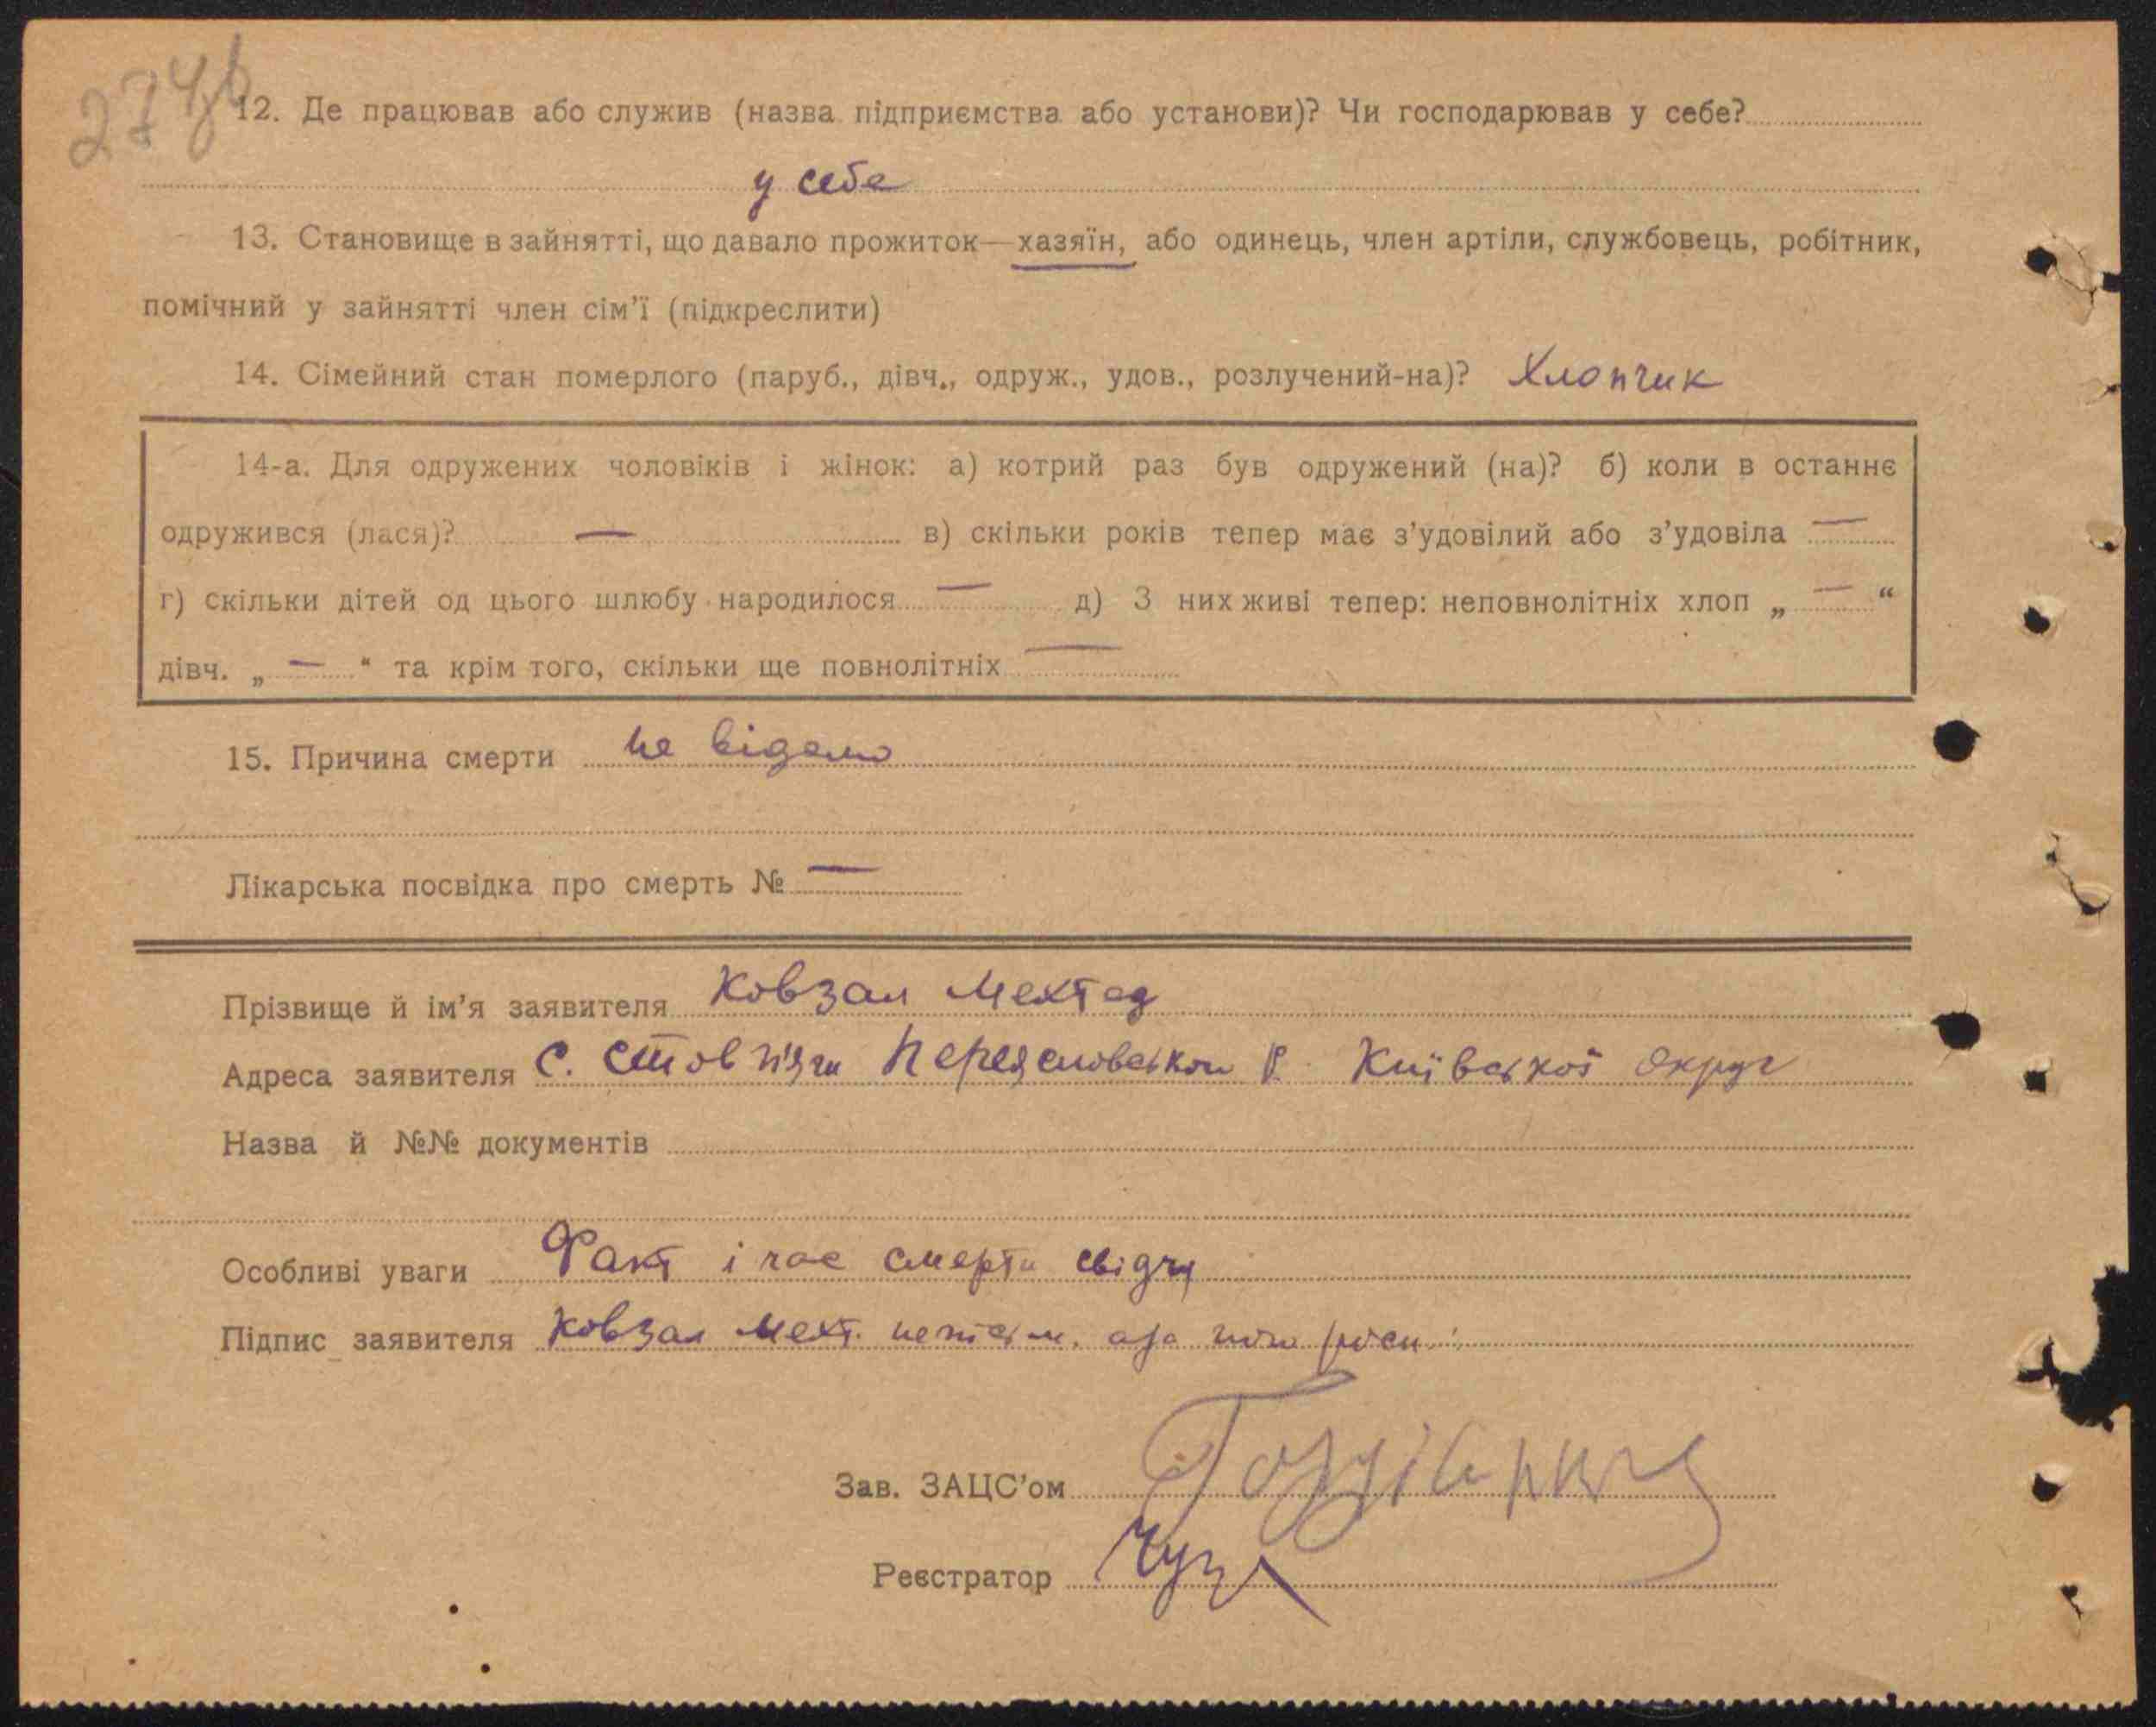 12. Де працював або служив (назва підприємства або установи)? Чи господарював у себе?
у себе
13. Становище в зайнятті, що давало прожиток—хазяїн, або одинець, член артіли, службовець, робітник,
помічний у зайнятті член сім’ї (підкреслити)
14. Сімейний стан померлого (паруб., дівч., одруж., удов., розлучений-на)? Хлопчик
14-а. Для одружених чоловіків і жінок: а) котрий раз був одружений (на)? б) коли в останнє
одружився (лася)? — в) скільки років тепер має з’удовілий або з’удовіла —
г) скільки дітей од цього шлюбу народилося — д) З них живі тепер: неповнолітніх хлоп „ — “
дівч. „ — “ та крім того, скільки ще повнолітніх —
15. Причина смерти не відомо
Лікарська посвідка про смерть № —
Прізвище й ім’я заявителя Ковзал Мехтод
Адреса заявителя с. Стовп'яги Переяславської Р. Київської округ
Назва й №№ документів
Особливі уваги Факт і час смерти свідчу
Підпис заявителя Ковзал Мехт.
Зав. ЗАЦС’ом
Реєстратор